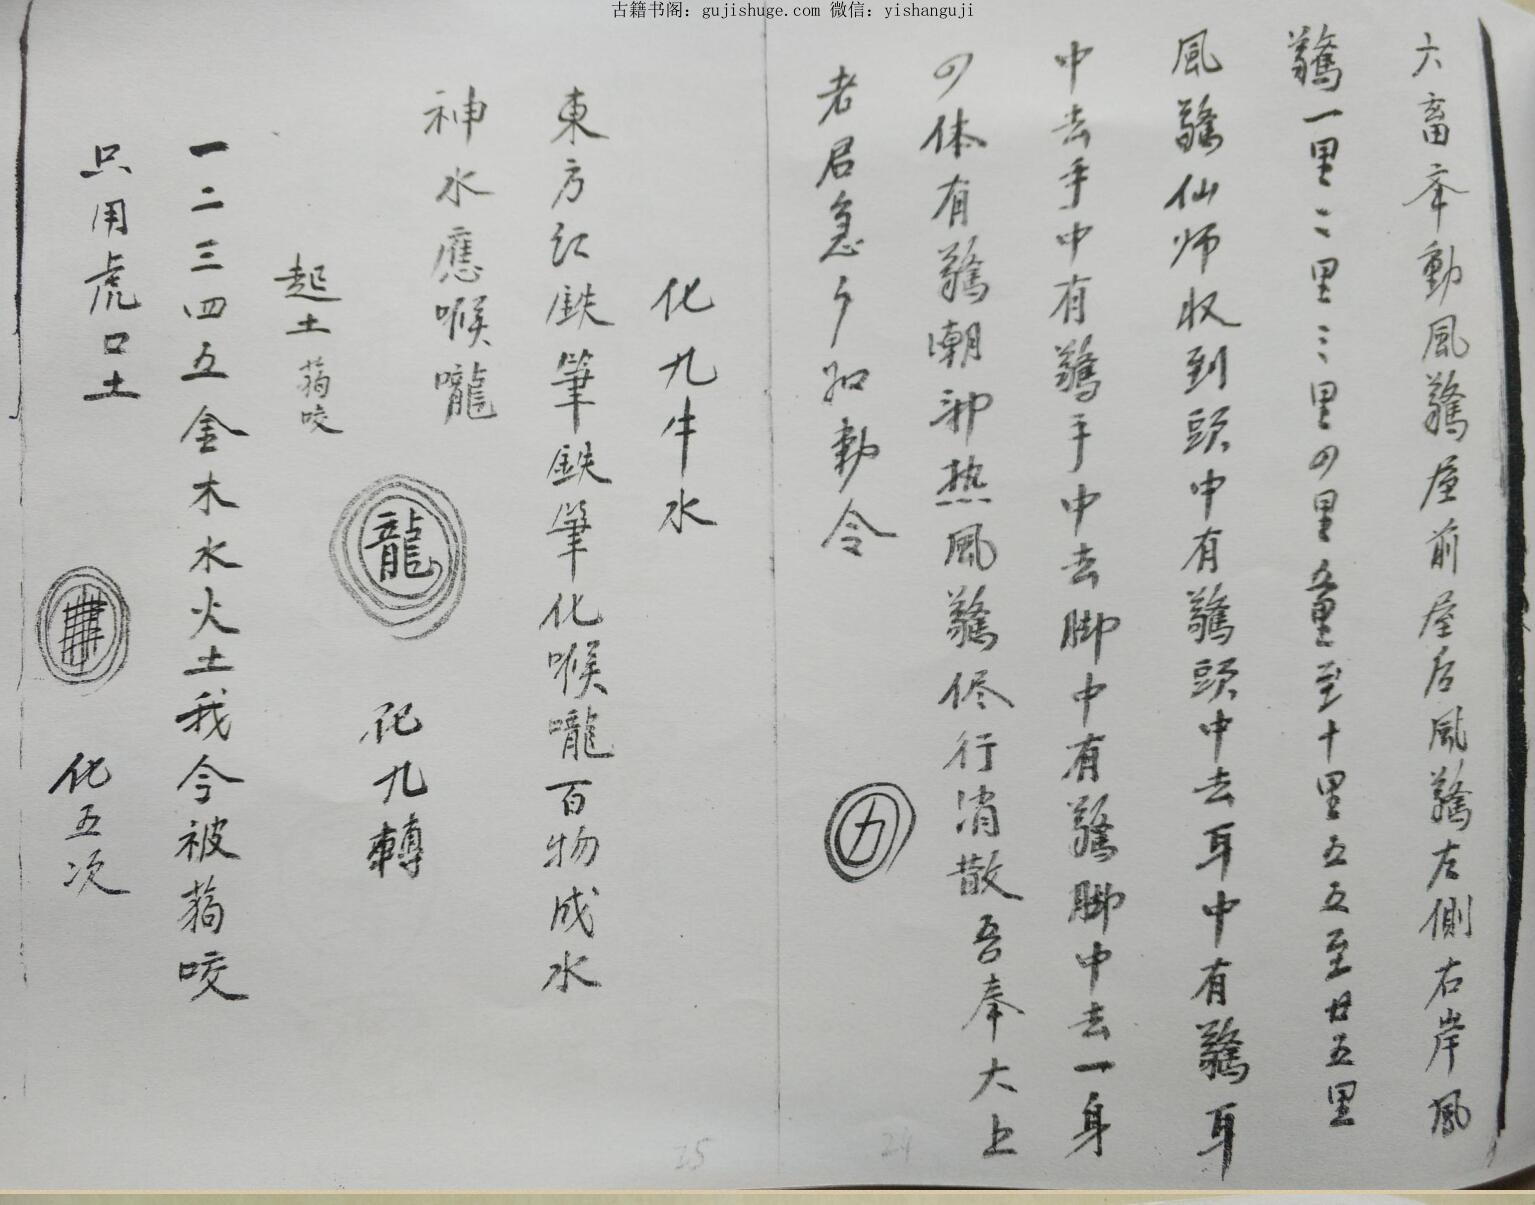 古籍书阁：gujishuge.com 微信：yishanguji
六畜牽動風驚屋前屋后風驚左側右岸風
驚一里二里三里四里五里至十里五五至廿五里
風驚仙师收到頭中有驚頭中去耳中有驚耳
中去手中有驚手中去脚中有驚脚中去一身
四体有驚嘲邪热風驚侭行消散吾奉大上
老君急々如勅令
九
化九牛水
東方红鉄筆鉄筆化喉嚨百物成水
神水應喉嚨
龍
化九轉
起土 蒟咬
一二三四五金木水火土我今被蒟咬
只用虎口土
化五次
24
25